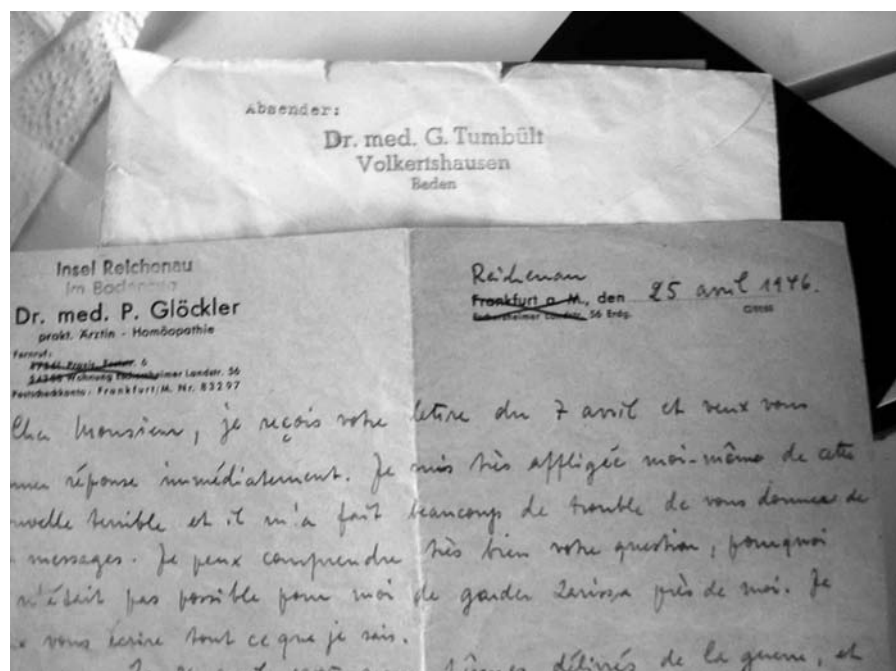 Absender:
Dr. med. G. Tumbült
Volkertshausen
Baden
Insel Reichenau
im Bodensee
Dr. med. P. Glöckler
prakt. Ärztin - Homöopathie
Fernruf:
Praxis, 6
Wohnung Eschersheimer Landstr. 56
Postscheckkonto: Frankfurt/M. Nr. 83297
Reichenau
Frankfurt a. M., den 25 avril 1946.
Eschersheimer Landstr. 56 Erdg.
Cher Monsieur, je reçois votre lettre du 7 avril et veux vous
réponse immédiatement. Je suis très affligée moi-même de cette
nouvelle terrible et il m'a fait beaucoup de trouble de vous donner de
messages. Je peux comprendre très bien votre question, pourquoi
n'était pas possible pour moi de garder Larissa près de moi. Je
vous écrire tout ce que je sais.
délivrés de la guerre, et